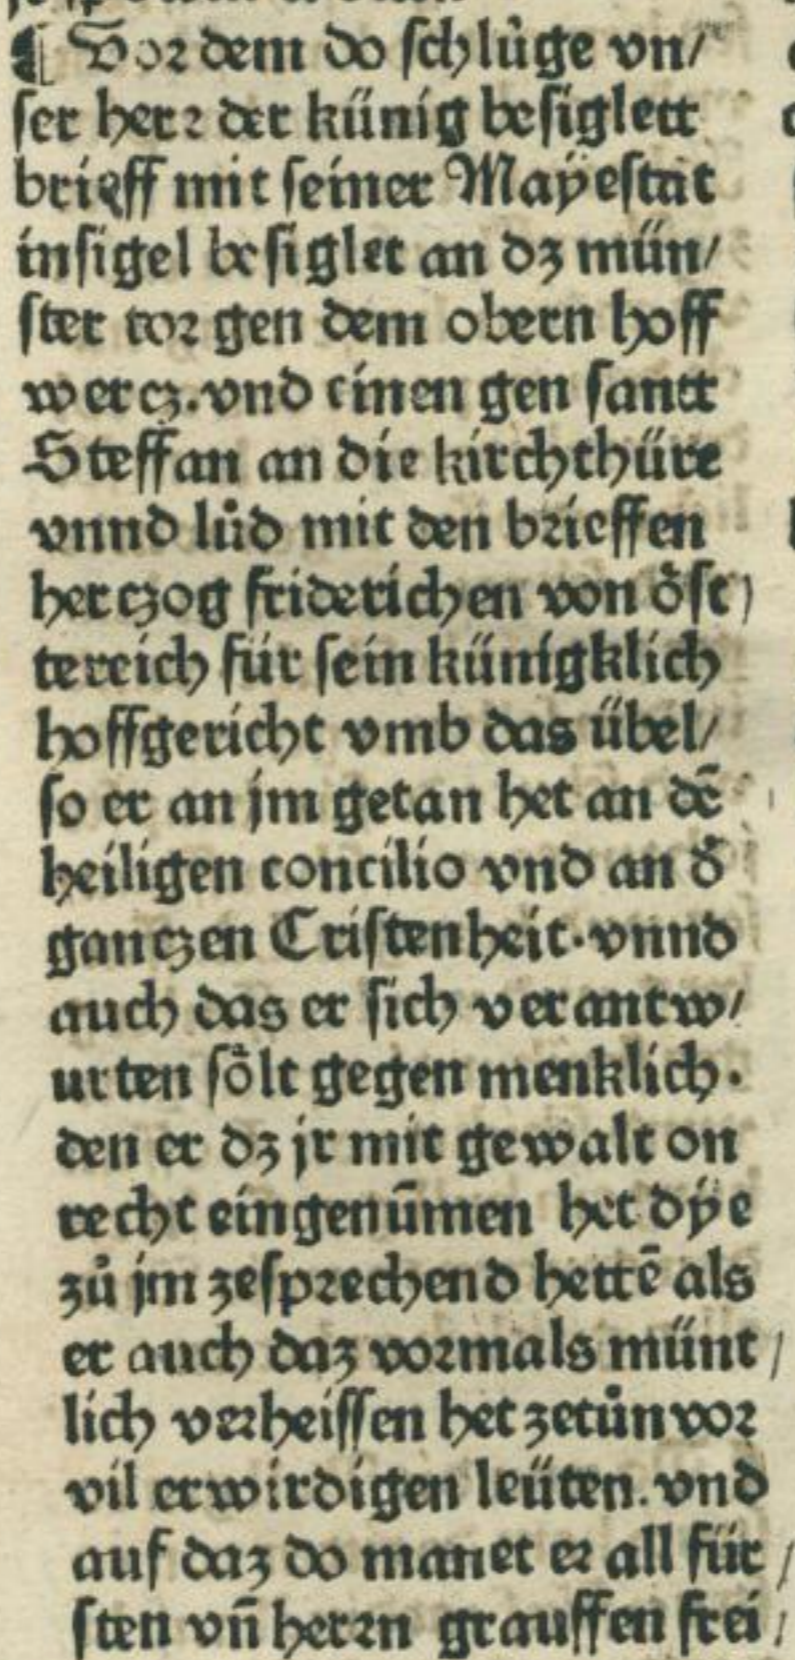 ¶ Vor dem do schlůge vn/
ser herr der künig besiglett
brieff mit seiner Maÿestat
insigel besiglet an dz mün/
ster tor gen dem obern hoff
wercz. vnd einen gen santt
Steffan an die kirchthüre
vnnd lůd mit den brieffen
herczog friderichen von oͤst/
terreich für sein künigklich
hoffgericht vmb das übel/
so er an jm getan het an dē
heiligen concilio vnd an d̾
ganczen Cristenheit. vnnd
auch das er sich verantw/
urten soͤlt gegen menklich.
den er dz jr mit gewalt on
recht eingenūmen het dÿe
zů jm zesprechend hettē als
er auch daz vormals münt/
lich verheissen het zetůn vor
vil erwirdigen leüten. vnd
auf daz do manet er all für/
sten vn̄ herrn grauffen frei/